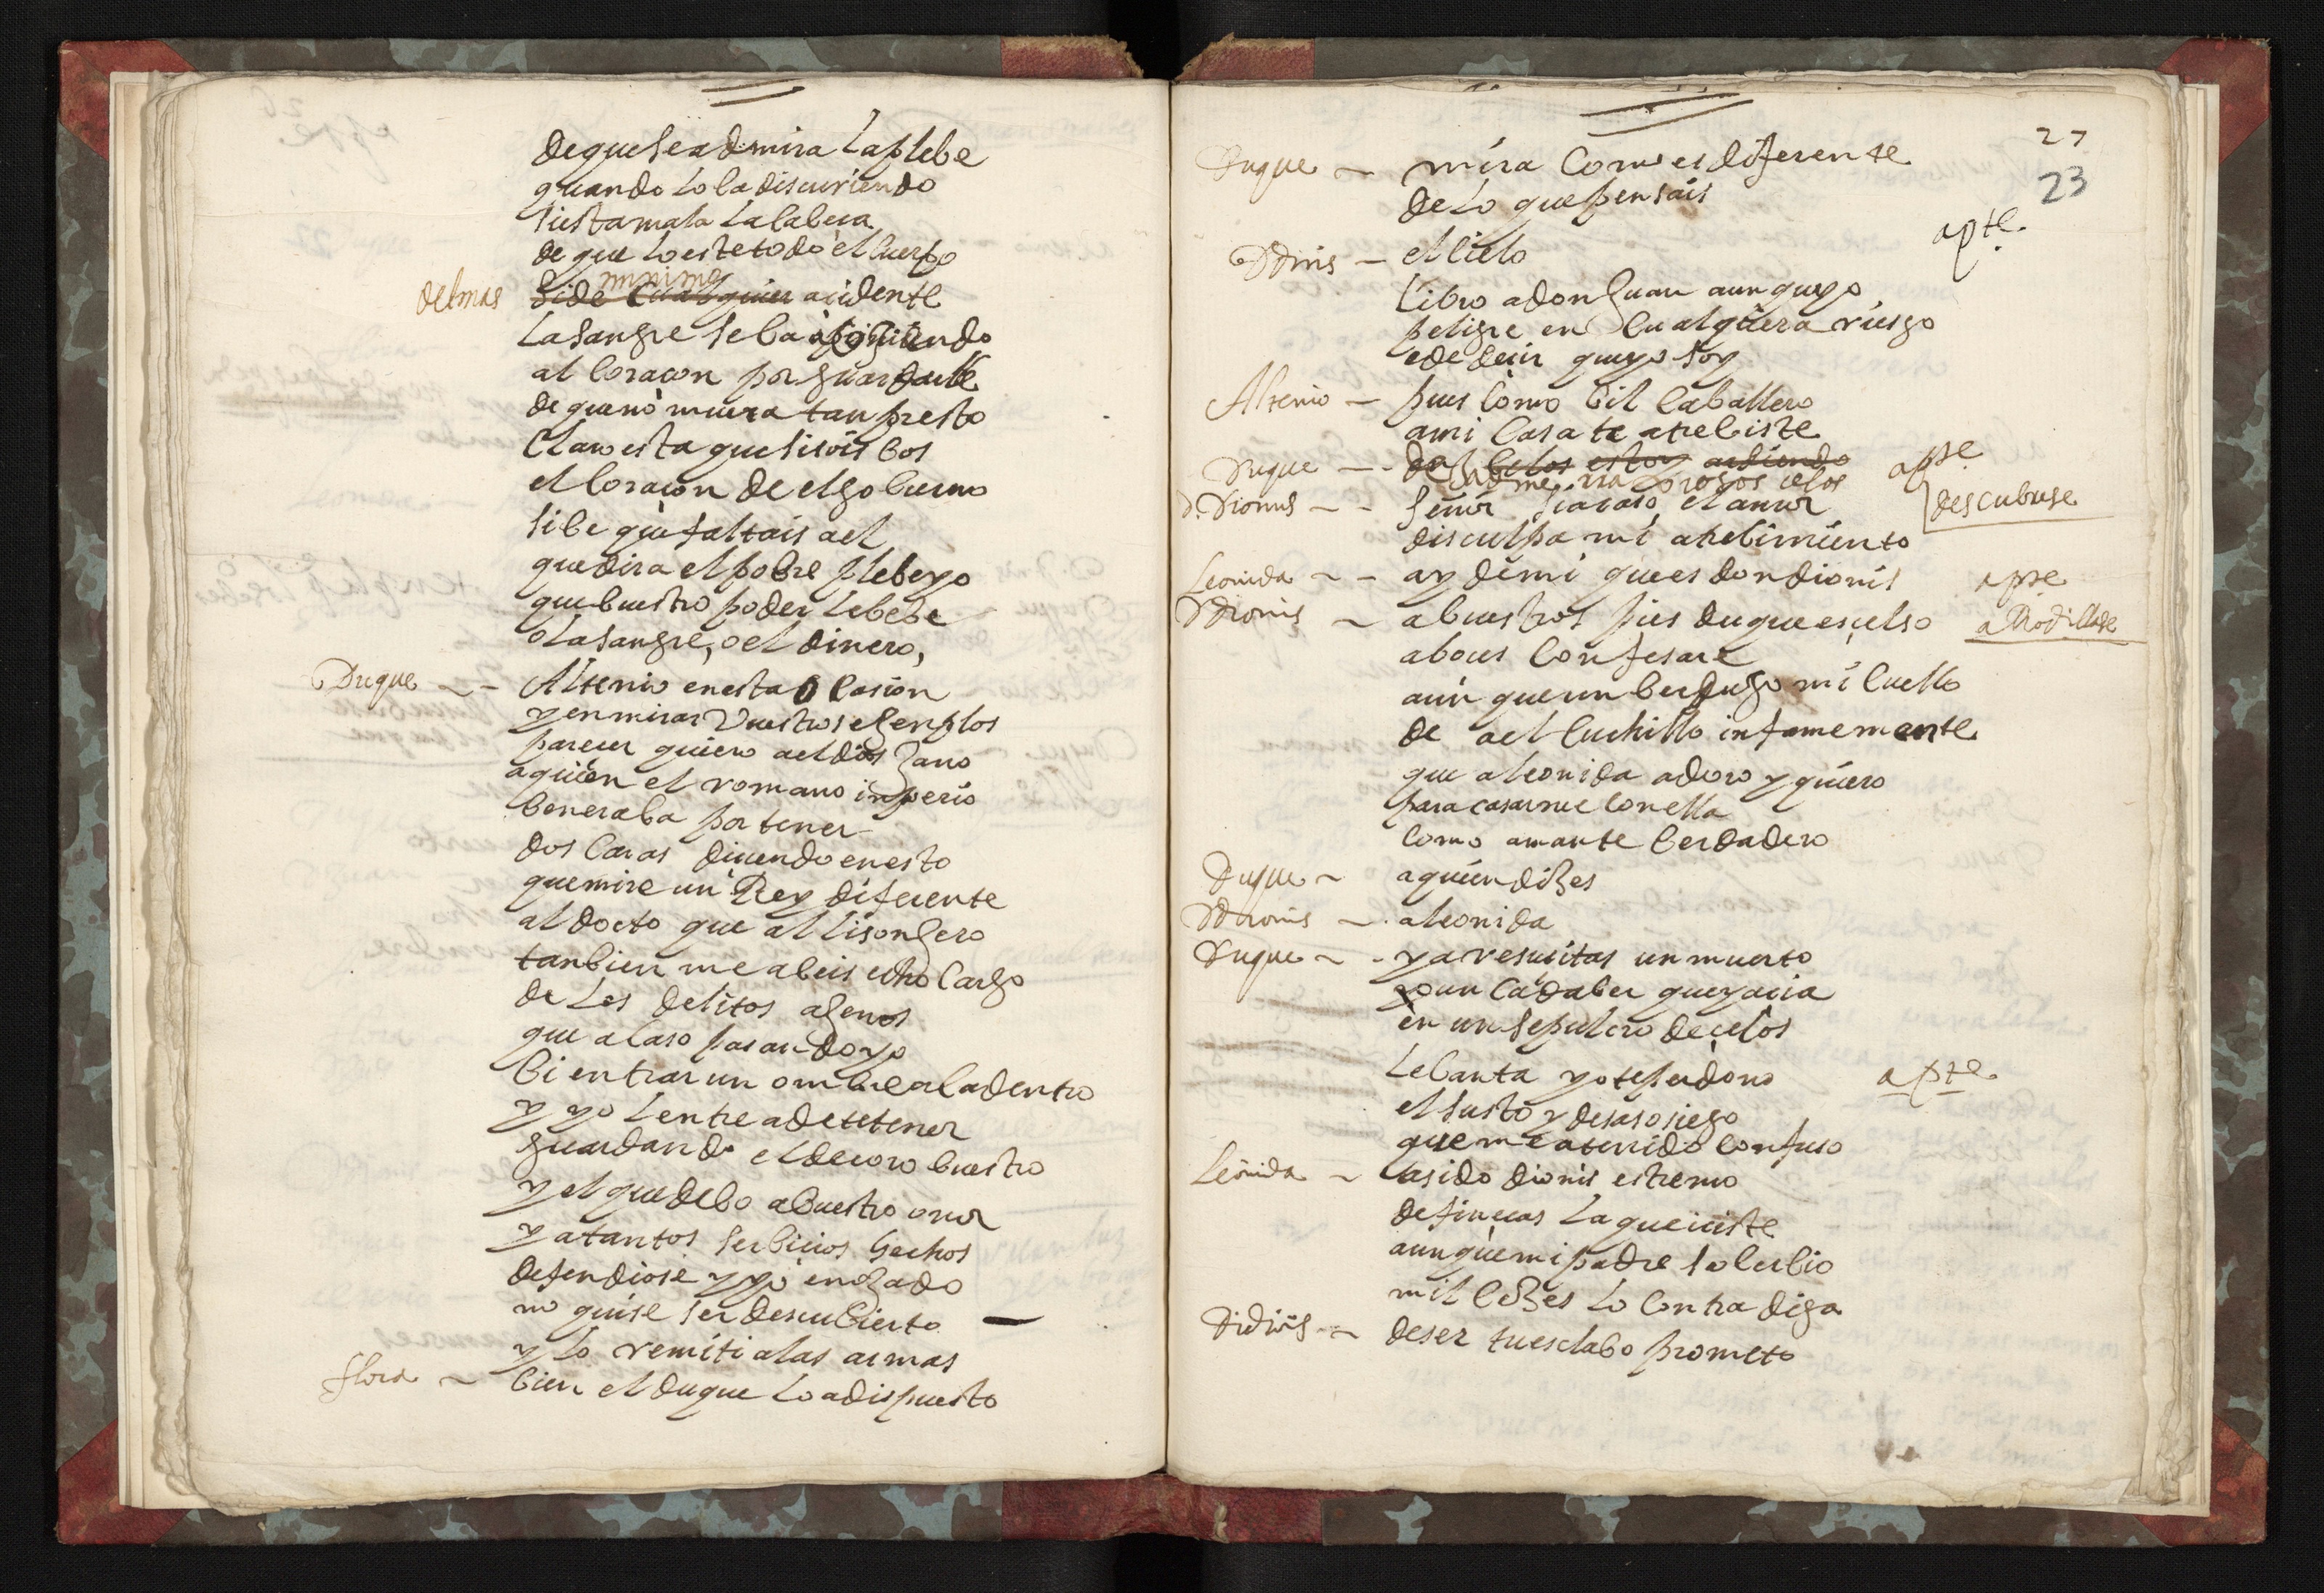 de que se admira la plebe
quando lo ba discurriendo
si esta mala la cabeça
de que lo este todo el cuerpo
del mas minimo acidente
la sangre se ba
al coraçon por guardarle
de que no muera tan presto
claro esta que si sois bos
el coraçon de el gobierno
si be que faltais a el
que dira el pobre plebeyo
que buestro poder le bebe
o la sangre, o el dinero,
Duque ~ - Alsenio en esta ocasion
y en mirar vuestros egenplos
parecer quiero a el dios Jano
a quien el romano inperio
beneraba por tener
dos caras diciendo en esto
que mire un Rey diferente
al docto que al lisongero
tanbien me abeis echo cargo
de los delitos agenos
que acaso pasando yo
bi entrar un ombre aca dentro
y yo lentre a detener
guardando el decoro buestro
y el que debo a buestro onor
y a tantos serbicios hechos
defendiose y yo enojado
no quise ser descubierto —
y lo remiti a las armas
flora ~ bien el duque lo a dispuesto
27
23
Duque ~ mira como es diferente
de lo que pensais
D Dinis - el cielo apte.
libro a don Juan aunque yo
peligre en cualquiera riesgo
e de decir que yo soy
Alsenio - pues como bil caballero
a mi casa te atrebiste
Duque - - de celos estoy ardiendo apte
celos
d. Dionis - - señor si acaso el amor descubrese
disculpa mi atrebimiento
Leonida ~ - ay de mi que es don dionis apte
D Dionis ~ a buestros pies duque escelso arrodillase
a boces confesare
aun que un berdugo mi cuello
de a el cuchillo infamemente
que a leonida adoro y quiero
para casarme con ella
como amante berdadero
Duque ~ a quien dizes
D Dionis ~ a leonida
Duque ~ - ya resucitas un muerto
y a un cadaber que yacia
en un sepulcro de celos
lebanta yo te perdono apte
el susto y desasosiego
que me a tenido confuso
Leonida ~ a sido dionis estremo
de finecas la que iciste
aunque mi padre soberbio
mil bezes lo contradiga
D dionis ~ de ser tu esclabo prometo